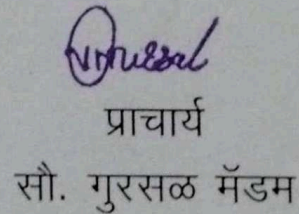 प्राचार्य
सौ. गुरसळ मॅडम